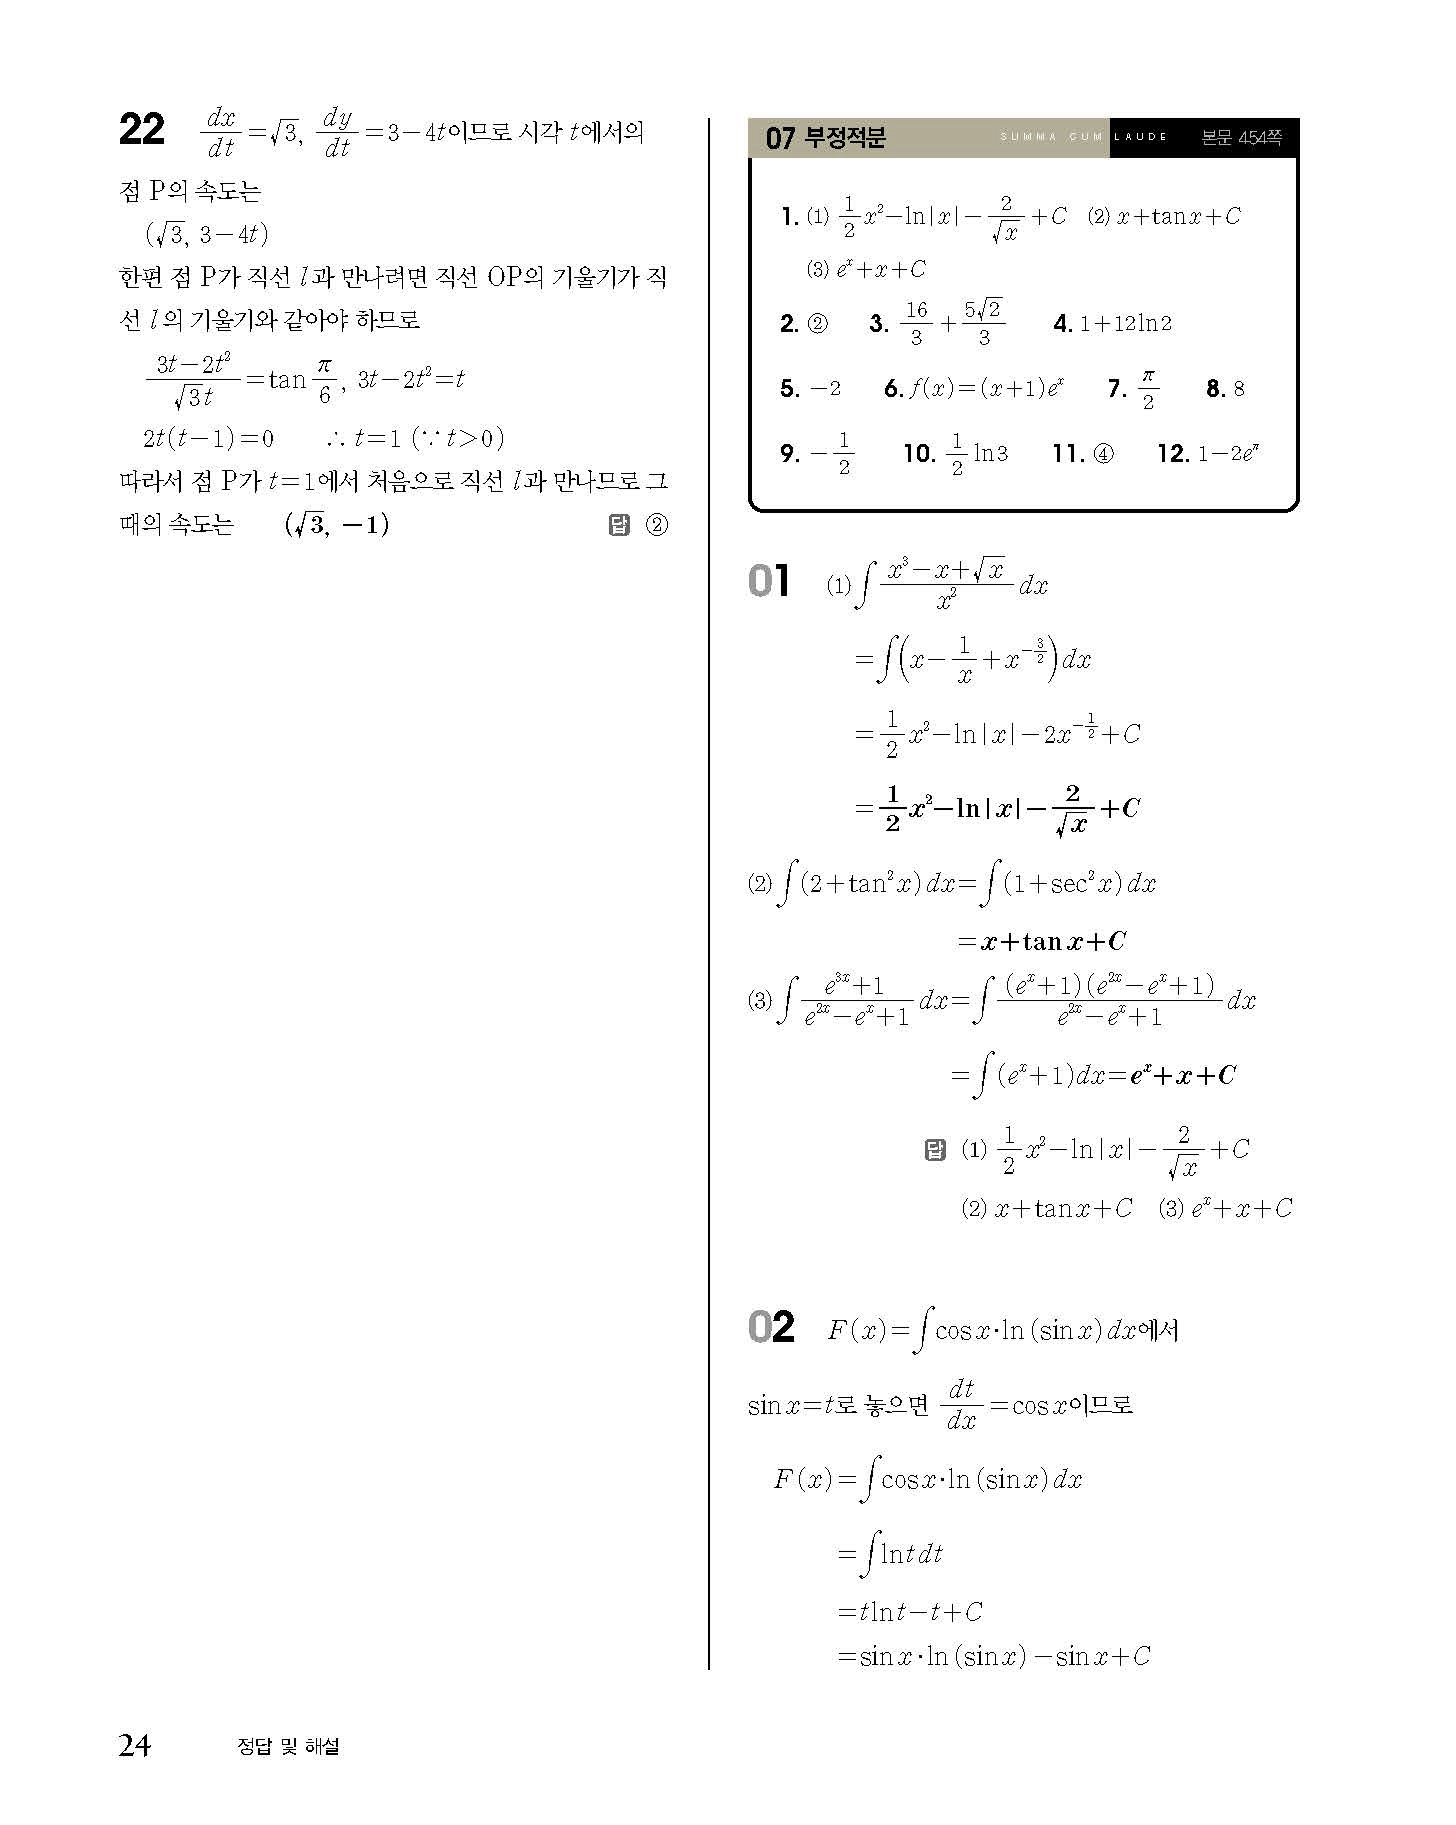 22 dx/dt=√3, dy/dt=3-4t이므로 시각 t에서의
점 P의 속도는
(√3, 3-4t)
한편 점 P가 직선 l과 만나려면 직선 OP의 기울기가 직
선 l의 기울기와 같아야 하므로
(3t-2t²)/(√3t)=tan π/6, 3t-2t²=t
2t(t-1)=0 ∴ t=1 (∵ t>0)
따라서 점 P가 t=1에서 처음으로 직선 l과 만나므로 그
때의 속도는 (√3, -1) 답 ②
07 부정적분 SUMMA CUM LAUDE 본문 454쪽
1. (1) 1/2 x²-ln|x|-2/√x+C (2) x+tan x+C
(3) eˣ+x+C
2. ② 3. 16/3+5√2/3 4. 1+12ln2
5. -2 6. f(x)=(x+1)eˣ 7. π/2 8. 8
9. -1/2 10. 1/2 ln3 11. ④ 12. 1-2e^π
01 (1) ∫(x³-x+√x)/x² dx
=∫(x-1/x+x^(-3/2))dx
=1/2 x²-ln|x|-2x^(-1/2)+C
=1/2 x²-ln|x|-2/√x+C
(2) ∫(2+tan²x)dx=∫(1+sec²x)dx
=x+tan x+C
(3) ∫(e³ˣ+1)/(e²ˣ-eˣ+1) dx=∫(eˣ+1)(e²ˣ-eˣ+1)/(e²ˣ-eˣ+1) dx
=∫(eˣ+1)dx=eˣ+x+C
답 (1) 1/2 x²-ln|x|-2/√x+C
(2) x+tan x+C (3) eˣ+x+C
02 F(x)=∫cos x·ln(sin x)dx에서
sin x=t로 놓으면 dt/dx=cos x이므로
F(x)=∫cos x·ln(sin x)dx
=∫ln t dt
=t ln t-t+C
=sin x·ln(sin x)-sin x+C
24 정답 및 해설